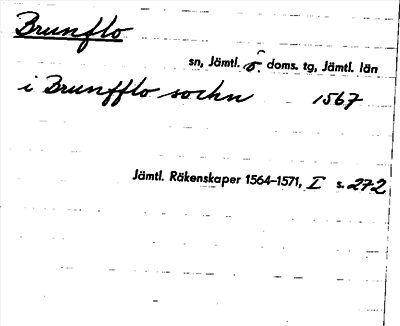 Brunflo
sn, Jämtl. ö. doms. tg, Jämtl. län
i Brunfflo sochn 1567
Jämtl. Räkenskaper 1564–1571, I s. 272